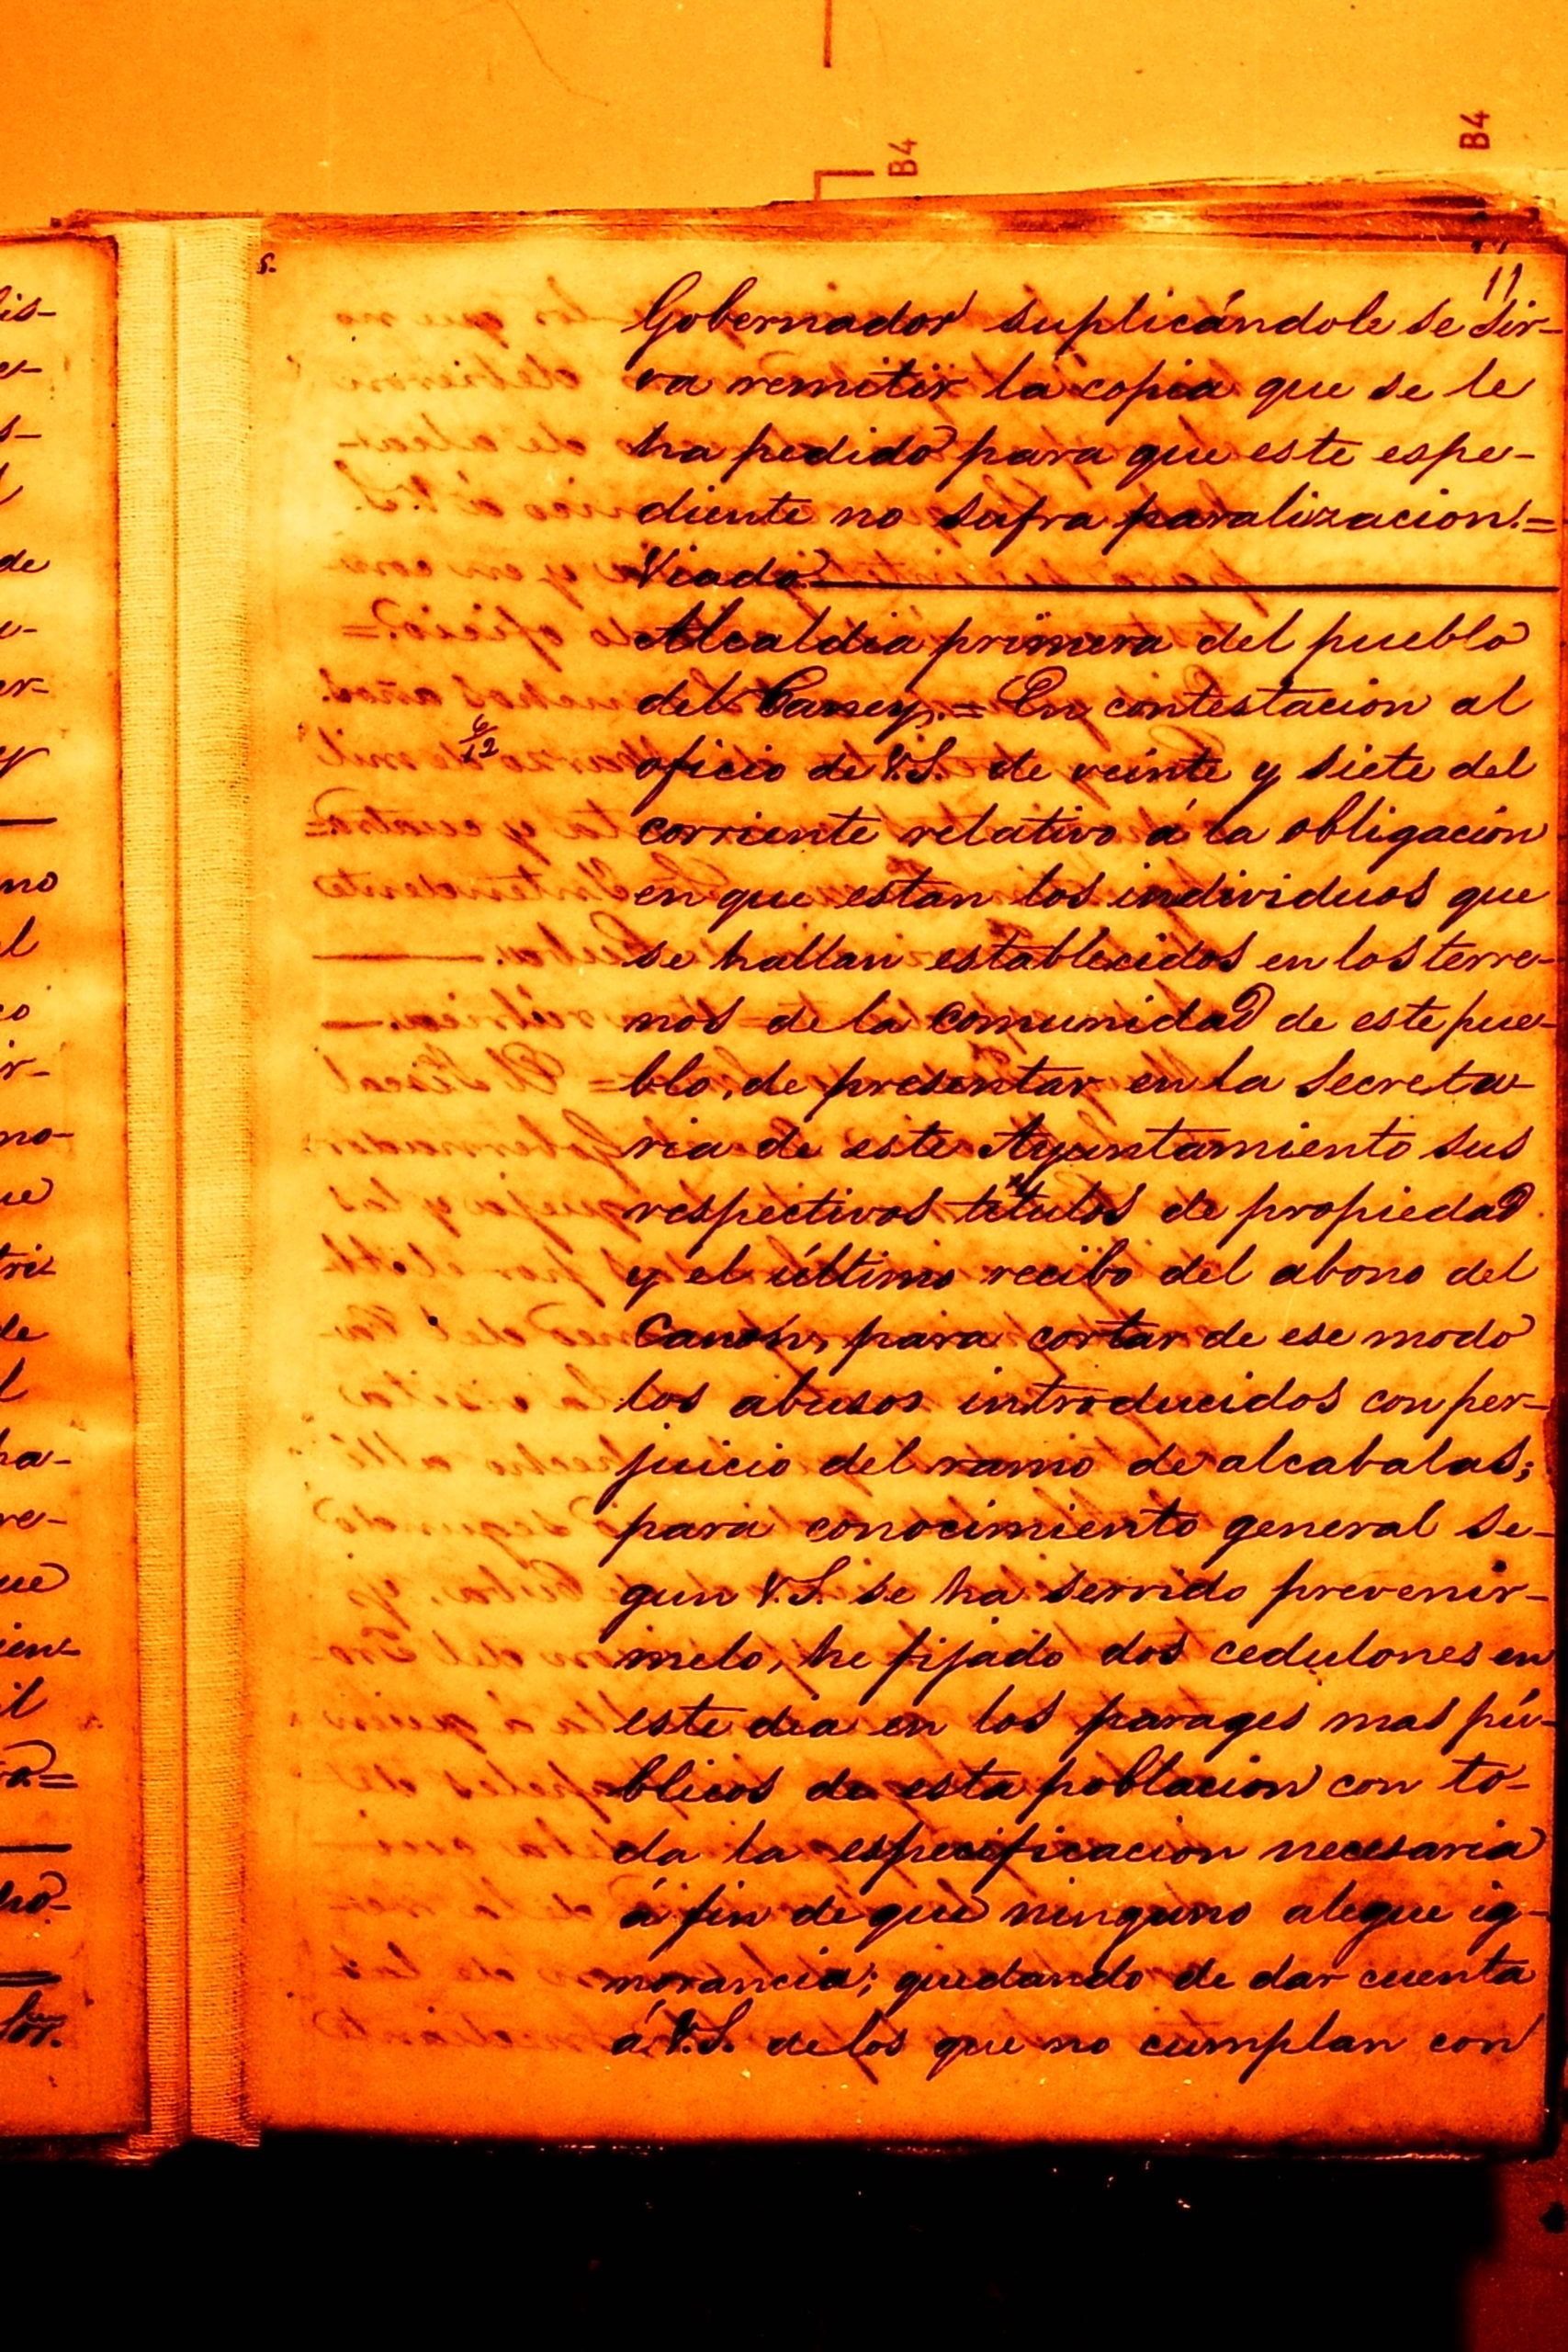 B4
B4
11
Gobernador suplicándole se sir-
va remitir la copia que se le
ha pedido para que este espe-
diente no sufra paralizacion.=
Viado
Alcaldia primera del pueblo
del Caney.= En contestacion al
6/12
oficio de V.S. de veinte y siete del
corriente relativo á la obligacion
en que estan los individuos que
se hallan establecidos en los terre-
nos de la comunidad de este pue-
blo, de presentar en la Secreta-
ria de este Ayuntamiento sus
respectivos titulos de propiedad
y el último recibo del abono del
Canon, para cortar de ese modo
los abusos introducidos con per-
juicio del ramo de alcabalas;
para conocimiento general se-
gun V.S. se ha servido prevenir-
melo, he fijado dos cedulones en
este dia en los parages mas pú-
blicos de esta poblacion con to-
da la especificacion necesaria
á fin de que ninguno alegue ig-
norancia; quedando de dar cuenta
á V.S. de los que no cumplan con